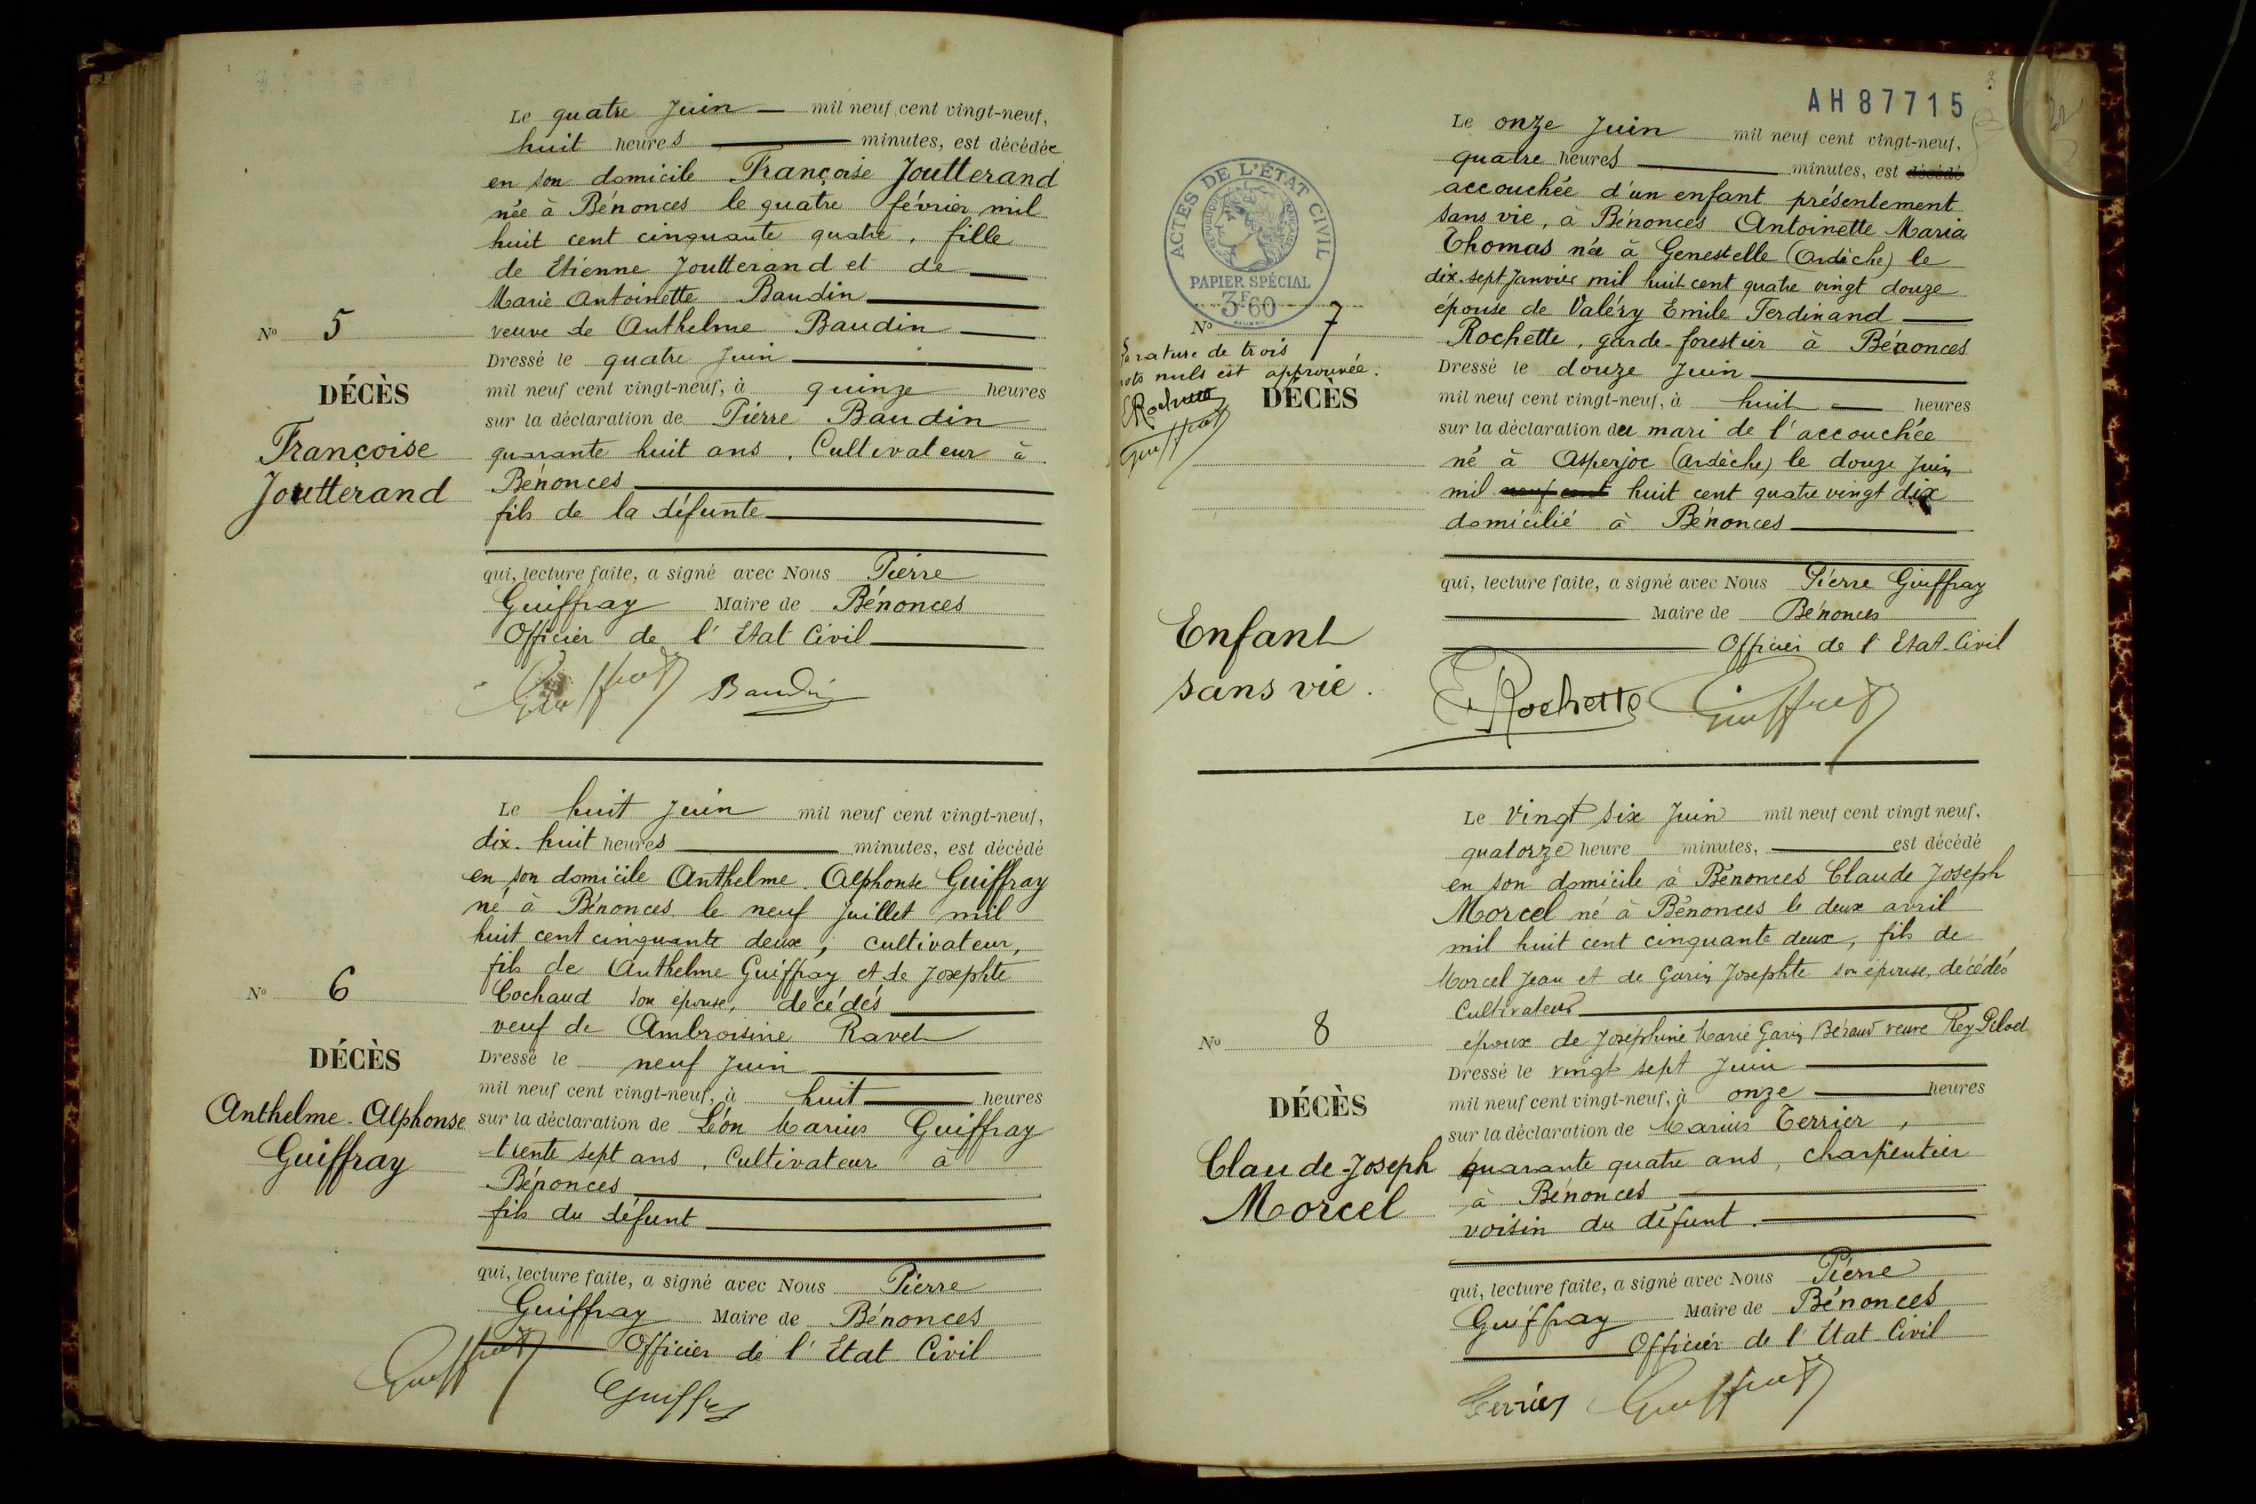 Le quatre Juin mil neuf cent vingt-neuf,
huit heures minutes, est décédée
en son domicile Françoise Joutterand
née à Bénonces le quatre février mil
huit cent cinquante quatre, fille
de Etienne Joutterand et de
Marie Antoinette Baudin
veuve de Anthelme Baudin
Nº 5
Dressé le quatre Juin
mil neuf cent vingt-neuf, à quinze heures
DÉCÈS
sur la déclaration de Pierre Baudin
Françoise
Joutterand
quarante huit ans, Cultivateur à
Bénonces
fils de la défunte
qui, lecture faite, a signé avec Nous Pierre
Guiffray Maire de Bénonces
Officier de l'Etat Civil
Baudin
Le huit Juin mil neuf cent vingt-neuf,
dix-huit heures minutes, est décédé
en son domicile Anthelme-Alphonse Guiffray
né à Bénonces le neuf Juillet mil
huit cent cinquante deux, cultivateur,
fils de Anthelme Guiffray et de Josephte
Cochaud son épouse, décédés
veuf de Ambroisine Ravet
Nº 6
Dressé le neuf Juin
mil neuf cent vingt-neuf, à huit heures
DÉCÈS
Anthelme-Alphonse
Guiffray
sur la déclaration de Léon Marius Guiffray
trente sept ans, Cultivateur à
Bénonces
fils du défunt
qui, lecture faite, a signé avec Nous Pierre
Guiffray Maire de Bénonces
Officier de l'Etat Civil
AH87715
ACTES DE L'ÉTAT CIVIL
PAPIER SPÉCIAL
3F60
Le onze Juin mil neuf cent vingt-neuf,
quatre heures minutes, est décédé
accouchée d'un enfant présentement
sans vie, à Bénonces Antoinette Maria
Thomas née à Genestelle (Ardèche) le
dix-sept Janvier mil huit cent quatre vingt douze
épouse de Valéry Emile Ferdinand
Rochette, garde-forestier à Bénonces
Nº 7
rature de trois
mots nuls est approuvée.
ERochette
DÉCÈS
Enfant
sans vie.
Dressé le douze Juin
mil neuf cent vingt-neuf, à huit heures
sur la déclaration du mari de l'accouchée
né à Asperjoc (Ardèche) le douze Juin
mil neuf cent huit cent quatre vingt dix
domicilié à Bénonces
qui, lecture faite, a signé avec Nous Pierre Guiffray
Maire de Bénonces
Officier de l'Etat-Civil
ERochette
Le Vingt six Juin mil neuf cent vingt neuf.
quatorze heure minutes, est décédé
en son domicile à Bénonces Claude Joseph
Morcel né à Bénonces le deux avril
mil huit cent cinquante deux, fils de
Morcel Jean et de Garin Josephte son épouse, décédés
Cultivateur
époux de Joséphine Marie Garin Béraud veuve Rey Pilod
Nº 8
Dressé le vingt sept Juin
mil neuf cent vingt-neuf, à onze heures
DÉCÈS
Claude-Joseph
Morcel
sur la déclaration de Marius Terrier,
quarante quatre ans, charpentier
à Bénonces
voisin du défunt.
qui, lecture faite, a signé avec Nous Pierre
Guiffray Maire de Bénonces
Officier de l'Etat Civil
Terrier